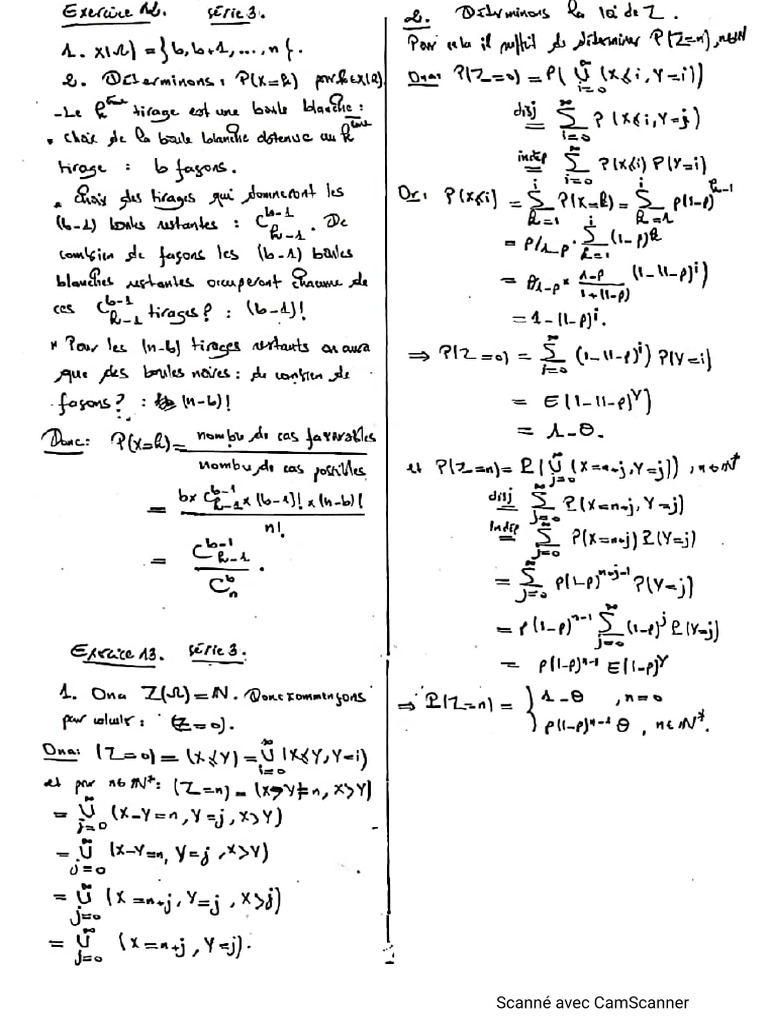 Exercice 12. série 3.
1. X(Ω) = {b, b+1, ..., n}.
2. Déterminons: P(X=k) pour k∈X(Ω).
- Le k^ème tirage est une boule blanche :
• choix de la boule blanche obtenue au k^ème
tirage : b façons.
• Choix des tirages qui donneront les
(b-1) boules restantes : C_{k-1}^{b-1}. De
combien de façons les (b-1) boules
blanches restantes occuperont chacune de
ces C_{k-1}^{b-1} tirages? : (b-1)!
* Pour les (n-b) tirages restants on aura
que des boules noires : de combien de
façons? : (n-b)!
Donc: P(X=k) = nombre de cas favorables / nombre de cas possibles
= b × C_{k-1}^{b-1} × (b-1)! × (n-b)! / n!
= C_{k-1}^{b-1} / C_n^b .
Exercice 13. série 3.
1. On a Z(Ω) = N. Donc commençons
par calculer : (Z=0).
On a: (Z=0) = (X⩽Y) = ∪_{i=0}^{∞} (X⩽Y, Y=i)
et pour n∈N*: (Z=n) = (X-Y=n, X>Y)
= ∪_{j=0}^{∞} (X-Y=n, Y=j, X>Y)
= ∪_{j=0}^{∞} (X-Y=n, Y=j, X>Y)
= ∪_{j=0}^{∞} (X=n+j, Y=j, X>j)
= ∪_{j=0}^{∞} (X=n+j, Y=j).
2. Déterminons la loi de Z.
Pour cela il suffit de déterminer P(Z=n), n∈N
On a: P(Z=0) = P( ∪_{i=0}^{∞} (X⩽i, Y=i))
disj = Σ_{i=0}^{∞} P(X⩽i, Y=j)
indep = Σ_{i=0}^{∞} P(X⩽i) P(Y=i)
Or: P(X⩽i) = Σ_{k=1}^{i} P(X=k) = Σ_{k=1}^{i} p(1-p)^{k-1}
= p/1-p · Σ_{k=1}^{i} (1-p)^k
= p/1-p × 1-p / 1+(1-p) (1-(1-p)^i)
= 1-(1-p)^i.
⇒ P(Z=0) = Σ_{i=0}^{∞} (1-(1-p)^i) P(Y=i)
= E(1-(1-p)^Y)
= 1-θ.
et P(Z=n) = P( ∪_{j=0}^{∞} (X=n+j, Y=j)), n∈N*
disj = Σ_{j=0}^{∞} P(X=n+j, Y=j)
indep = Σ_{j=0}^{∞} P(X=n+j) P(Y=j)
= Σ_{j=0}^{∞} p(1-p)^{n+j-1} P(Y=j)
= p(1-p)^{n-1} Σ_{j=0}^{∞} (1-p)^j P(Y=j)
= p(1-p)^{n-1} E(1-p)^Y
⇒ P(Z=n) = { 1-θ , n=0
p(1-p)^{n-1} θ , n∈N*.
Scanné avec CamScanner